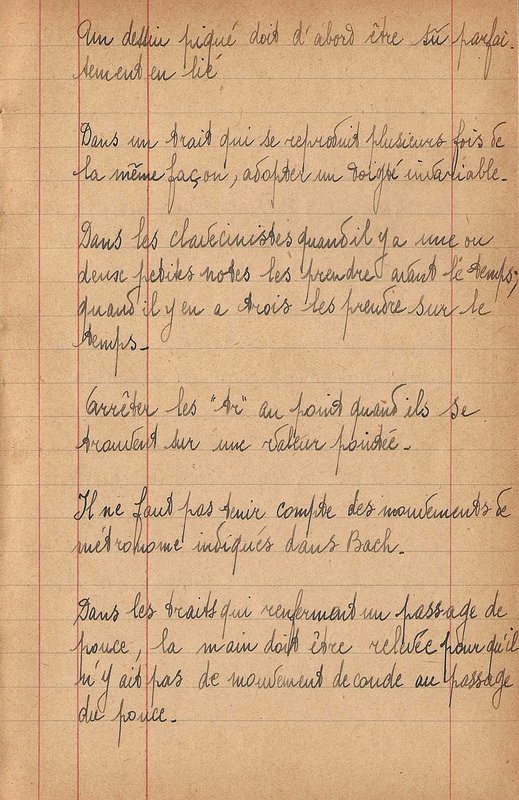 Un dessin piqué doit d'abord être su parfai-
tement en lié
Dans un trait qui se reproduit plusieurs fois de
la même façon, adopter un doigté invariable.
Dans les clavecinistes quand il y a une ou
deux petites notes les prendre avant le temps;
quand il y en a trois les prendre sur le
temps.
Arrêter les "tr" au point quand ils se
trouvent sur une valeur pointée.
Il ne faut pas tenir compte des mouvements de
métronome indiqués dans Bach.
Dans les traits qui renferment un passage de
pouce, la main doit être relevée pour qu'il
n'y ait pas de mouvement de coude au passage
du pouce.